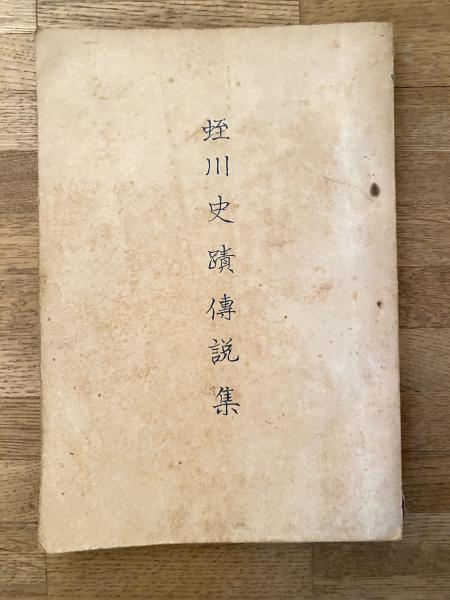 蛭川史蹟傳説集